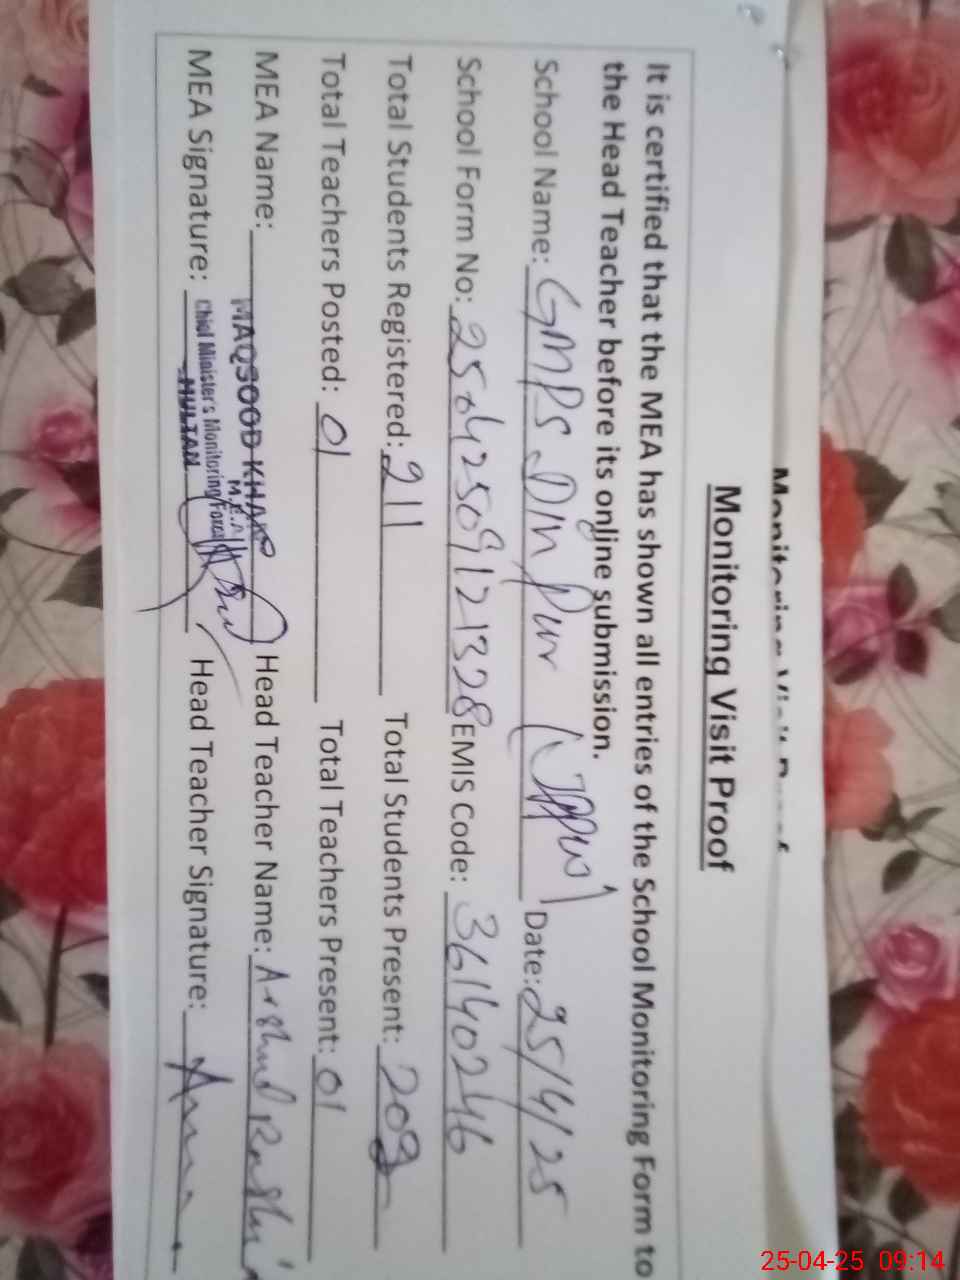 Monitoring Visit Proof
Monitoring Visit Proof
It is certified that the MEA has shown all entries of the School Monitoring Form to
the Head Teacher before its online submission.
School Name: GMPS Din Pur Date: 25/4/25
School Form No: EMIS Code: 36140246
Total Students Registered: 211 Total Students Present: 209
Total Teachers Posted: 01 Total Teachers Present: 01
MEA Name: MAQSOOD KHAN Head Teacher Name: Arshad Rashid
M.E.A
MEA Signature: Chief Minister's Monitoring Force Head Teacher Signature:
MULTAN
25-04-25 09:14